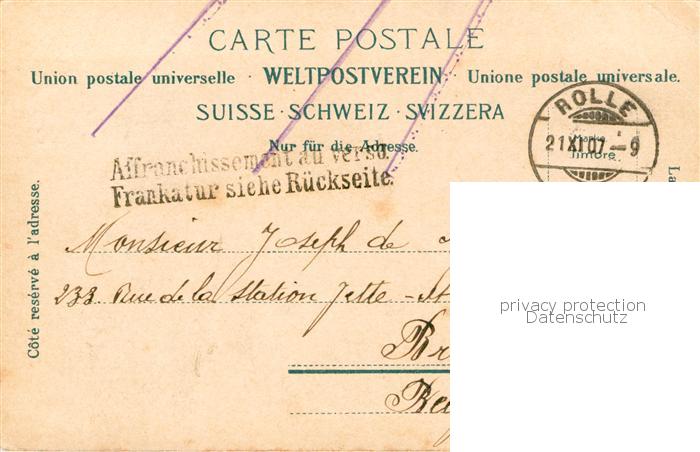 CARTE POSTALE
Union postale universelle · WELTPOSTVEREIN · Unione postale universale.
SUISSE · SCHWEIZ · SVIZZERA
Nur für die Adresse.
ROLLE
21 XI 07 – 9
Marke
Timbre
Affranchissement au verso.
Frankatur siehe Rückseite.
Côté resérvé à l'adresse.
La
Monsieur Joseph de
233 Rue de la Station Jette - St
Br
Be
privacy protection
Datenschutz